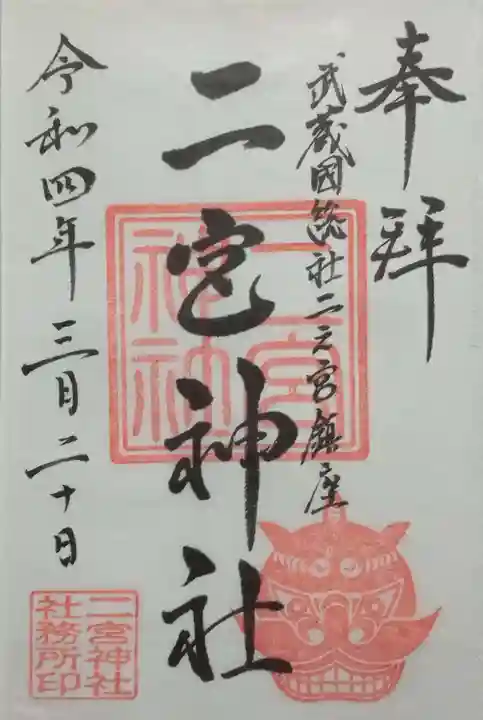 奉拜
武蔵國総社二之宮鎮座
二宮神社
令和四年三月二十日
二宮神社
二宮神社
社務所印